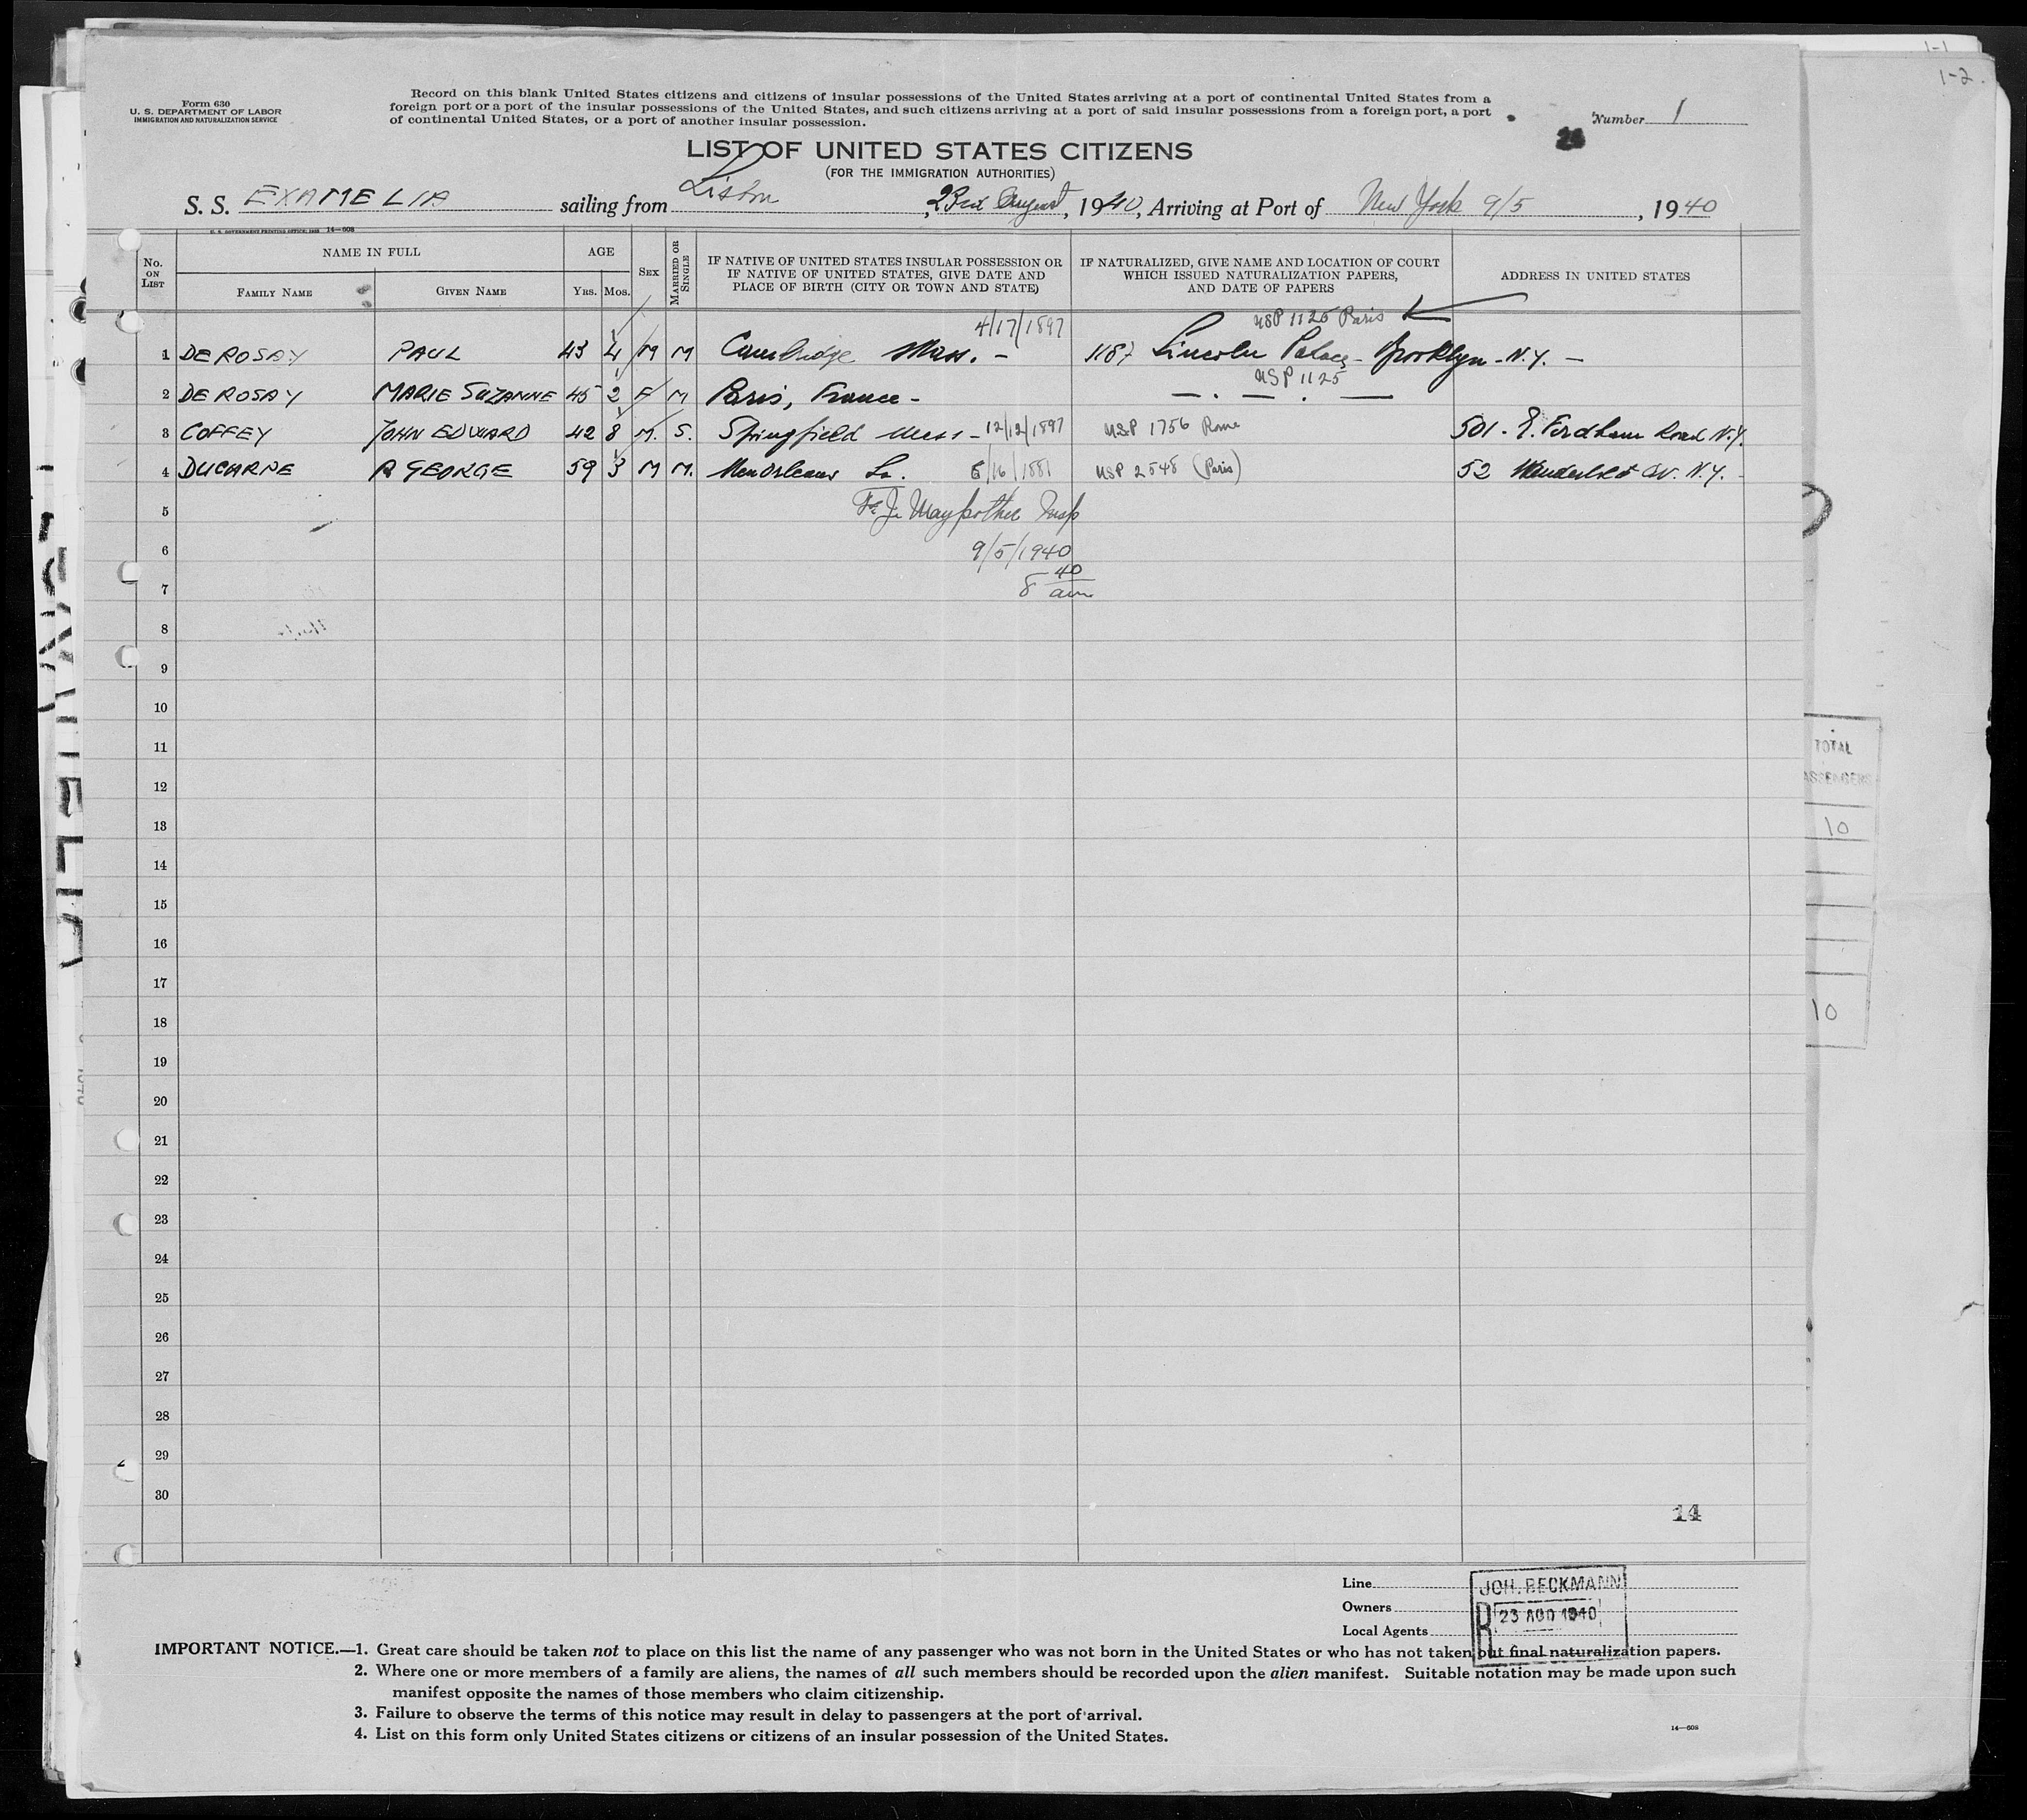 1-1
1-2.
Form 630
U. S. DEPARTMENT OF LABOR
IMMIGRATION AND NATURALIZATION SERVICE
Record on this blank United States citizens and citizens of insular possessions of the United States arriving at a port of continental United States from a
foreign port or a port of the insular possessions of the United States, and such citizens arriving at a port of said insular possessions from a foreign port, a port
of continental United States, or a port of another insular possession.
Number 1
LIST OF UNITED STATES CITIZENS
(FOR THE IMMIGRATION AUTHORITIES)
S. S. EXAMELIA sailing from Lisbon, August, 1940, Arriving at Port of New York 9/5, 1940
U. S. GOVERNMENT PRINTING OFFICE: 14—608
No. ON LIST
NAME IN FULL
FAMILY NAME
GIVEN NAME
AGE
YRS. MOS.
SEX
MARRIED OR SINGLE
IF NATIVE OF UNITED STATES INSULAR POSSESSION OR
IF NATIVE OF UNITED STATES, GIVE DATE AND
PLACE OF BIRTH (CITY OR TOWN AND STATE)
IF NATURALIZED, GIVE NAME AND LOCATION OF COURT
WHICH ISSUED NATURALIZATION PAPERS,
AND DATE OF PAPERS
ADDRESS IN UNITED STATES
4/17/1897 USP 1125 Paris
1 DE ROSAY PAUL 43 4 M M Cambridge Mass. - 1187 Lincoln Place - Brooklyn - N.Y. -
USP 1125
2 DE ROSAY MARIE SUZANNE 45 2 F M Paris, France -
3 COFFEY JOHN EDWARD 42 8 M. S. Springfield Mass - 12/12/1897 USP 1756 Rome 501 - E. Fordham Road N.Y.
4 DUCARNE R GEORGE 59 3 M M. New Orleans La. 5/16/1881 USP 2548 (Paris) 52 Vanderbilt Av. N.Y. -
5 Insp
6 9/5/1940
7 8 40 am
8
9
10
11
12
13
14
15
16
17
18
19
20
21
22
23
24
25
26
27
28
29
30
14
TOTAL
PASSENGERS
10
10
EXAMELIA
Line
Owners
Local Agents
JOH. BECKMANN
23 AGO 1940
IMPORTANT NOTICE.—1. Great care should be taken not to place on this list the name of any passenger who was not born in the United States or who has not taken out final naturalization papers.
2. Where one or more members of a family are aliens, the names of all such members should be recorded upon the alien manifest. Suitable notation may be made upon such
manifest opposite the names of those members who claim citizenship.
3. Failure to observe the terms of this notice may result in delay to passengers at the port of arrival.
4. List on this form only United States citizens or citizens of an insular possession of the United States.
14—608